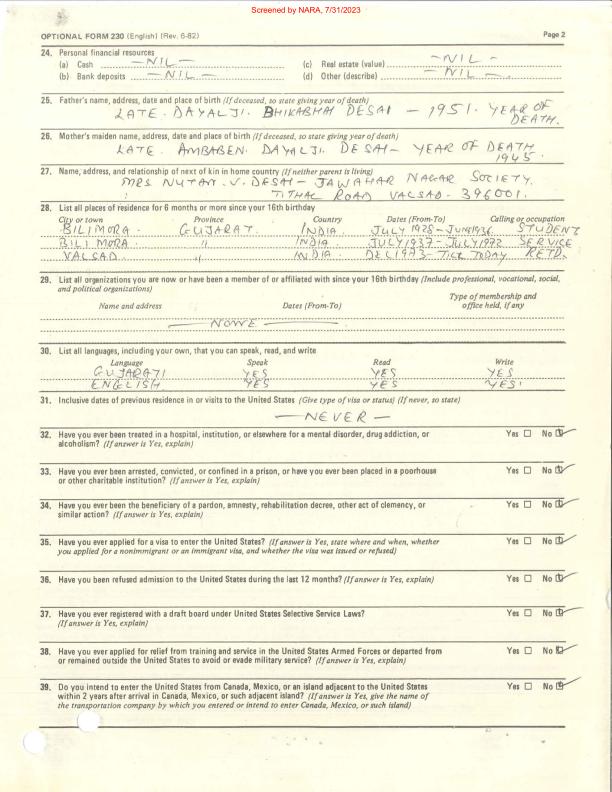 Screened by NARA, 7/31/2023
OPTIONAL FORM 230 (English) (Rev. 6-82) Page 2
24. Personal financial resources
(a) Cash —NIL— (c) Real estate (value) —NIL—
(b) Bank deposits —NIL— (d) Other (describe) —NIL—
25. Father's name, address, date and place of birth (If deceased, so state giving year of death)
LATE. DAYALJI. BHIKABHAI DESAI — 1951. YEAR OF
DEATH.
26. Mother's maiden name, address, date and place of birth (If deceased, so state giving year of death)
LATE. AMBABEN. DAYALJI. DESAI— YEAR OF DEATH
1945.
27. Name, address, and relationship of next of kin in home country (If neither parent is living)
MRS NUTAN. V. DESAI— JAWAHAR NAGAR SOCIETY.
TITHAL ROAD VALSAD. 396001.
28. List all places of residence for 6 months or more since your 16th birthday
City or town Province Country Dates (From-To) Calling or occupation
BILIMORA. GUJARAT. INDIA. JULY 1928-JUNE1936. STUDENT
BILI MORA. " INDIA. JULY1937-JULY1972 SERVICE
VALSAD. " INDIA. DEC1973-TILL TODAY RETD.
29. List all organizations you are now or have been a member of or affiliated with since your 16th birthday (Include professional, vocational, social,
and political organizations)
Name and address Dates (From-To) Type of membership and
office held, if any
—NONE—
30. List all languages, including your own, that you can speak, read, and write
Language Speak Read Write
GUJARATI YES YES YES
ENGLISH. YES YES YES.
31. Inclusive dates of previous residence in or visits to the United States (Give type of visa or status) (If never, so state)
—NEVER—
32. Have you ever been treated in a hospital, institution, or elsewhere for a mental disorder, drug addiction, or Yes ☐ No ☑
alcoholism? (If answer is Yes, explain)
33. Have you ever been arrested, convicted, or confined in a prison, or have you ever been placed in a poorhouse Yes ☐ No ☑
or other charitable institution? (If answer is Yes, explain)
34. Have you ever been the beneficiary of a pardon, amnesty, rehabilitation decree, other act of clemency, or Yes ☐ No ☑
similar action? (If answer is Yes, explain)
35. Have you ever applied for a visa to enter the United States? (If answer is Yes, state where and when, whether Yes ☐ No ☑
you applied for a nonimmigrant or an immigrant visa, and whether the visa was issued or refused)
36. Have you been refused admission to the United States during the last 12 months? (If answer is Yes, explain) Yes ☐ No ☑
37. Have you ever registered with a draft board under United States Selective Service Laws? Yes ☐ No ☑
(If answer is Yes, explain)
38. Have you ever applied for relief from training and service in the United States Armed Forces or departed from Yes ☐ No ☑
or remained outside the United States to avoid or evade military service? (If answer is Yes, explain)
39. Do you intend to enter the United States from Canada, Mexico, or an island adjacent to the United States Yes ☐ No ☑
within 2 years after arrival in Canada, Mexico, or such adjacent island? (If answer is Yes, give the name of
the transportation company by which you entered or intend to enter Canada, Mexico, or such island)